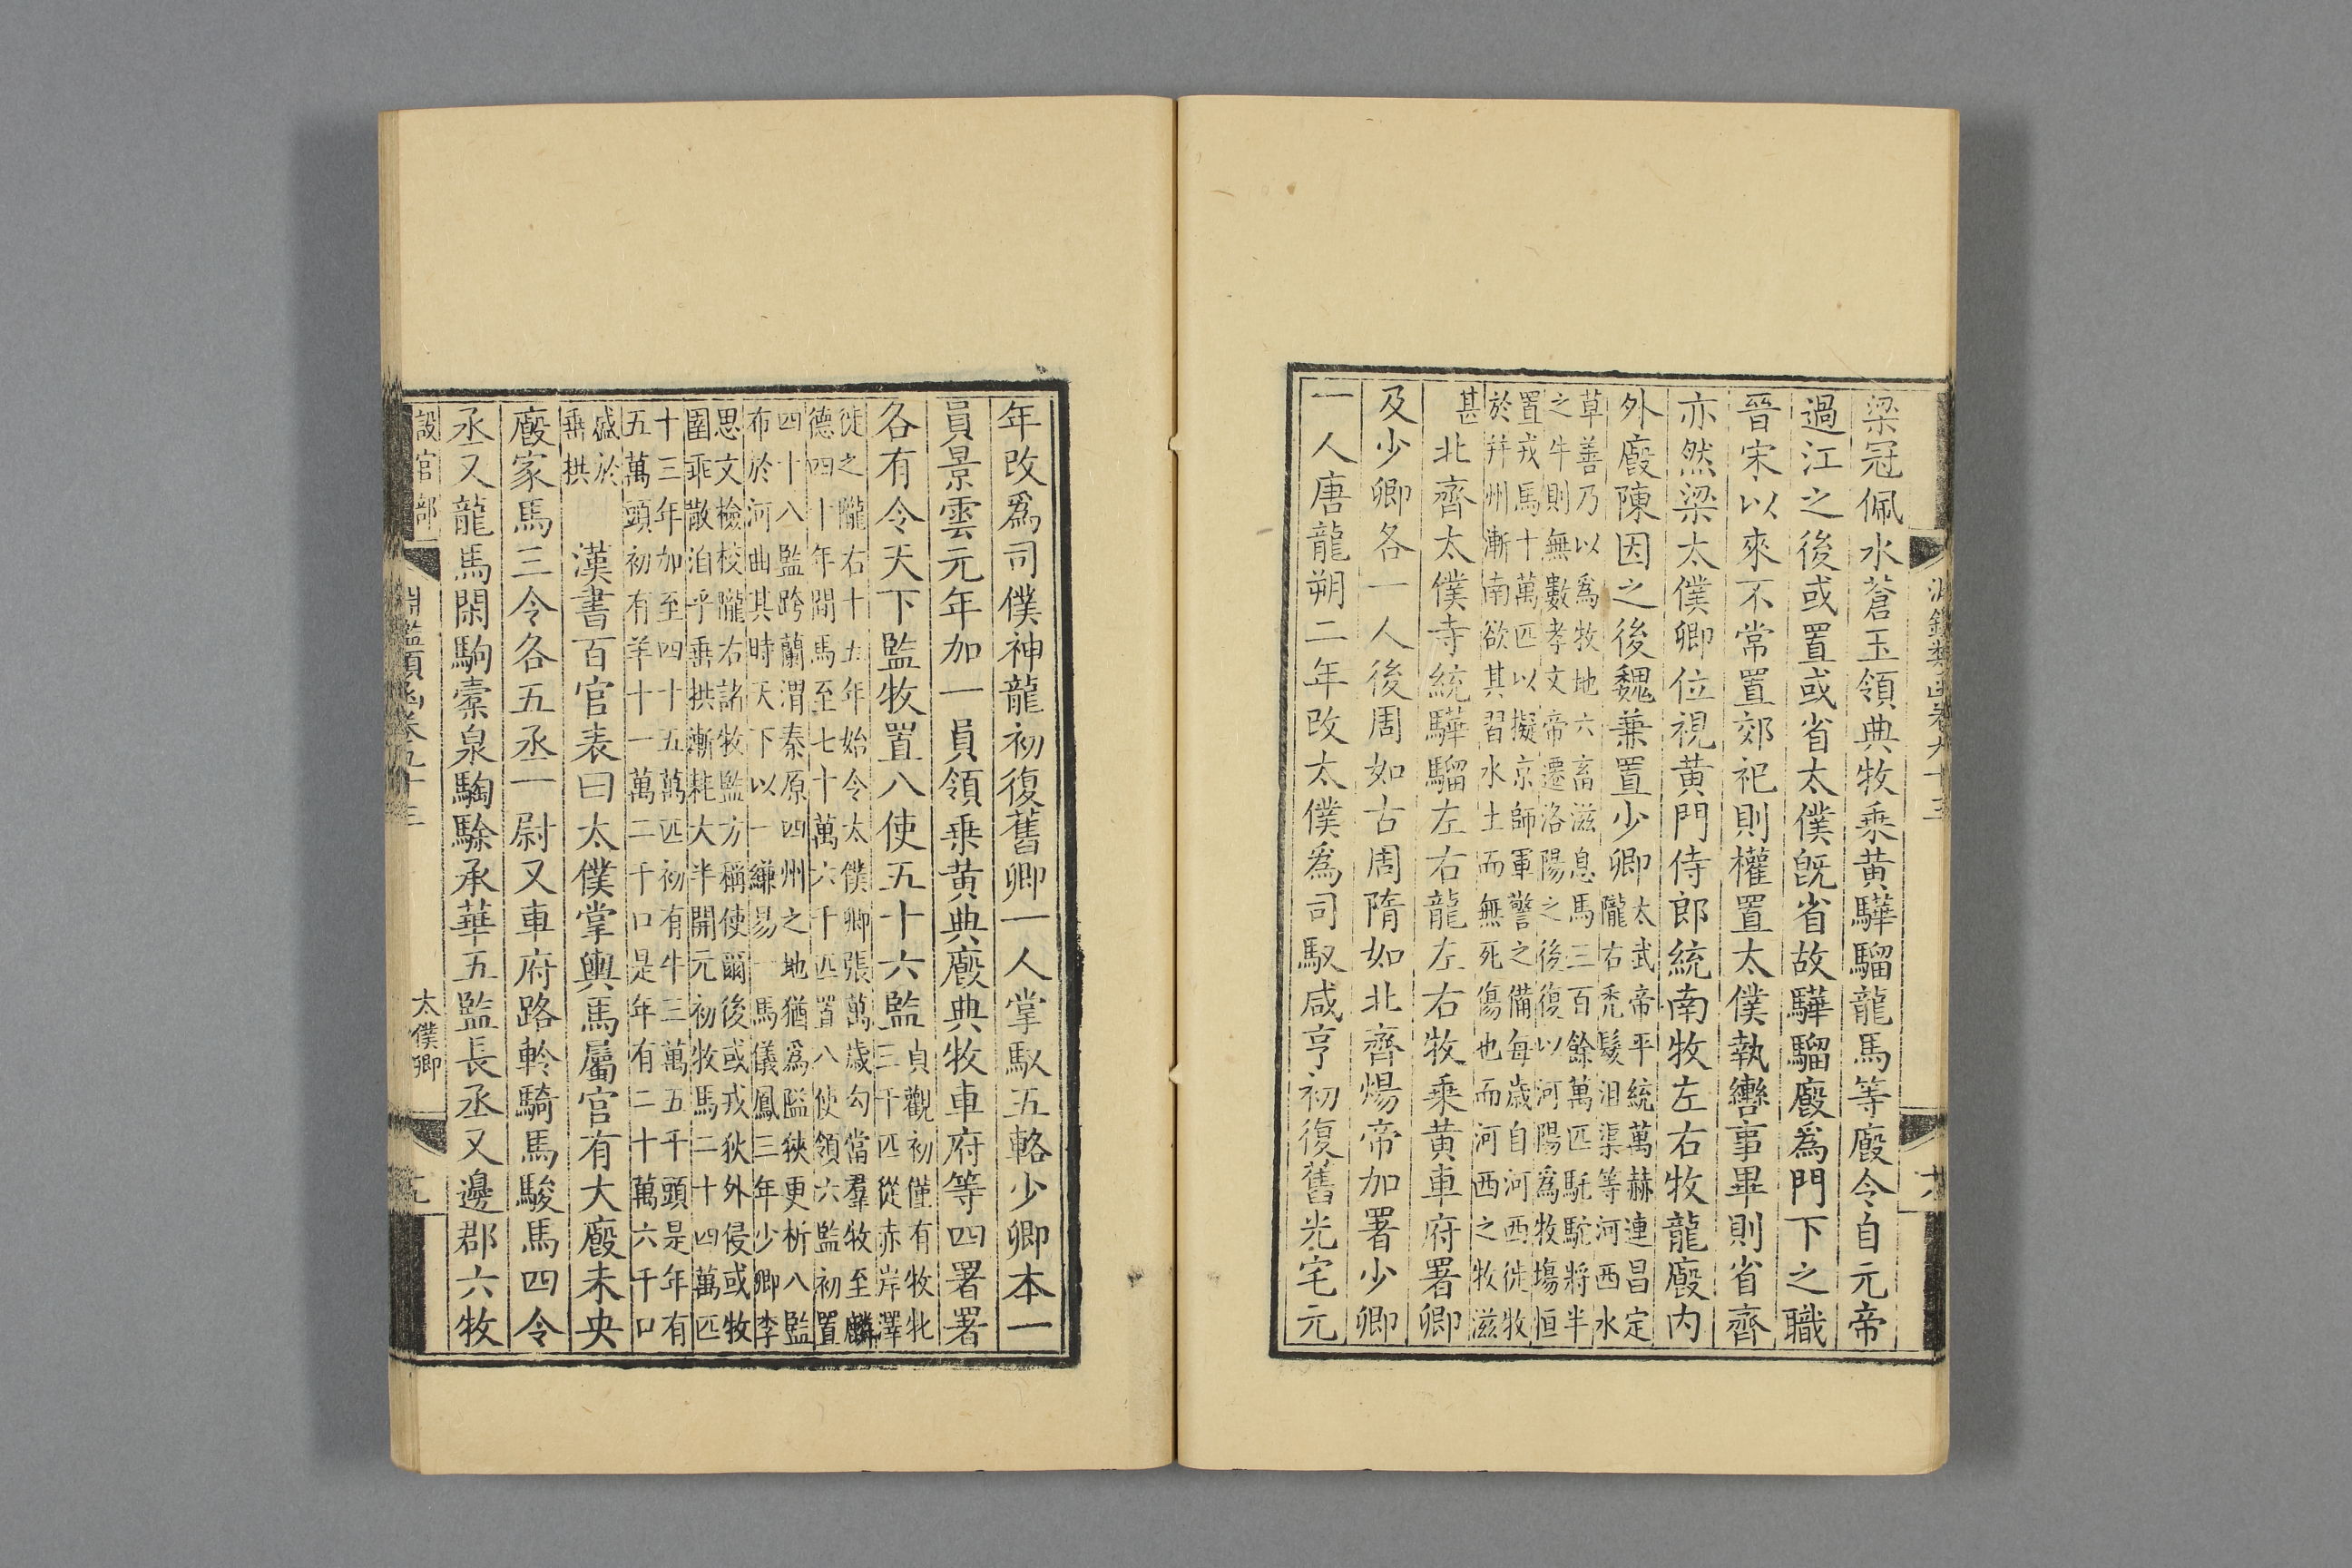 梁冠佩水蒼玉領典牧乗黄驊騮龍馬等廄令自元帝
過江之後或置或省太僕旣省故驊騮廄爲門下之職
晉宋以來不常置郊祀則權置太僕執轡事畢則省齊
亦然梁太僕卿位視黄門侍郎統南牧左右牧龍廄内
外廄陳因之後魏兼置少卿太武帝平統萬赫連昌定隴右禿髮沮渠等河西水
草善乃以爲牧地六畜滋息馬三百餘萬匹駝駝將半之牛則無數孝文帝遷洛陽之後復以河陽爲牧場恒
置戎馬十萬匹以擬京師軍警之備每歲自河西徙牧於幷州漸南欲其習水土而無死傷也而河西之牧滋
甚北齊太僕寺統驊騮左右龍左右牧乗黄車府署卿
及少卿各一人後周如古周隋如北齊煬帝加署少卿
一人唐龍朔二年改太僕爲司馭咸亨初復舊光宅元
年改爲司僕神龍初復舊卿一人掌馭五輅少卿本一
員景雲元年加一員領乗黄典廄典牧車府等四署署
各有令天下監牧置八使五十六監貞觀初僅有牧牝三千匹從赤岸澤
徙之隴右十五年始令太僕卿張萬歲勾當羣牧至麟德四十年間馬至七十萬六千匹置八使領六監初置
四十八監跨蘭渭秦原四州之地猶爲隘狹更析八監布於河曲其時天下以一縑易一馬儀鳳三年少卿李
思文檢校隴右諸牧監方稱使爾後或戎狄外侵或牧圉乖散洎乎垂拱漸耗大半開元初牧馬二十四萬匹
十三年加至四十五萬匹初有牛三萬五千頭是年有五萬頭初有羊十一萬二千口是年有二十萬六千口
盛於垂拱漢書百官表曰太僕掌輿馬屬官有大廄未央
廄家馬三令各五丞一尉又車府路軨騎馬駿馬四令
丞又龍馬閑駒橐泉騊駼承華五監長丞又邊郡六牧
設官部
太僕卿